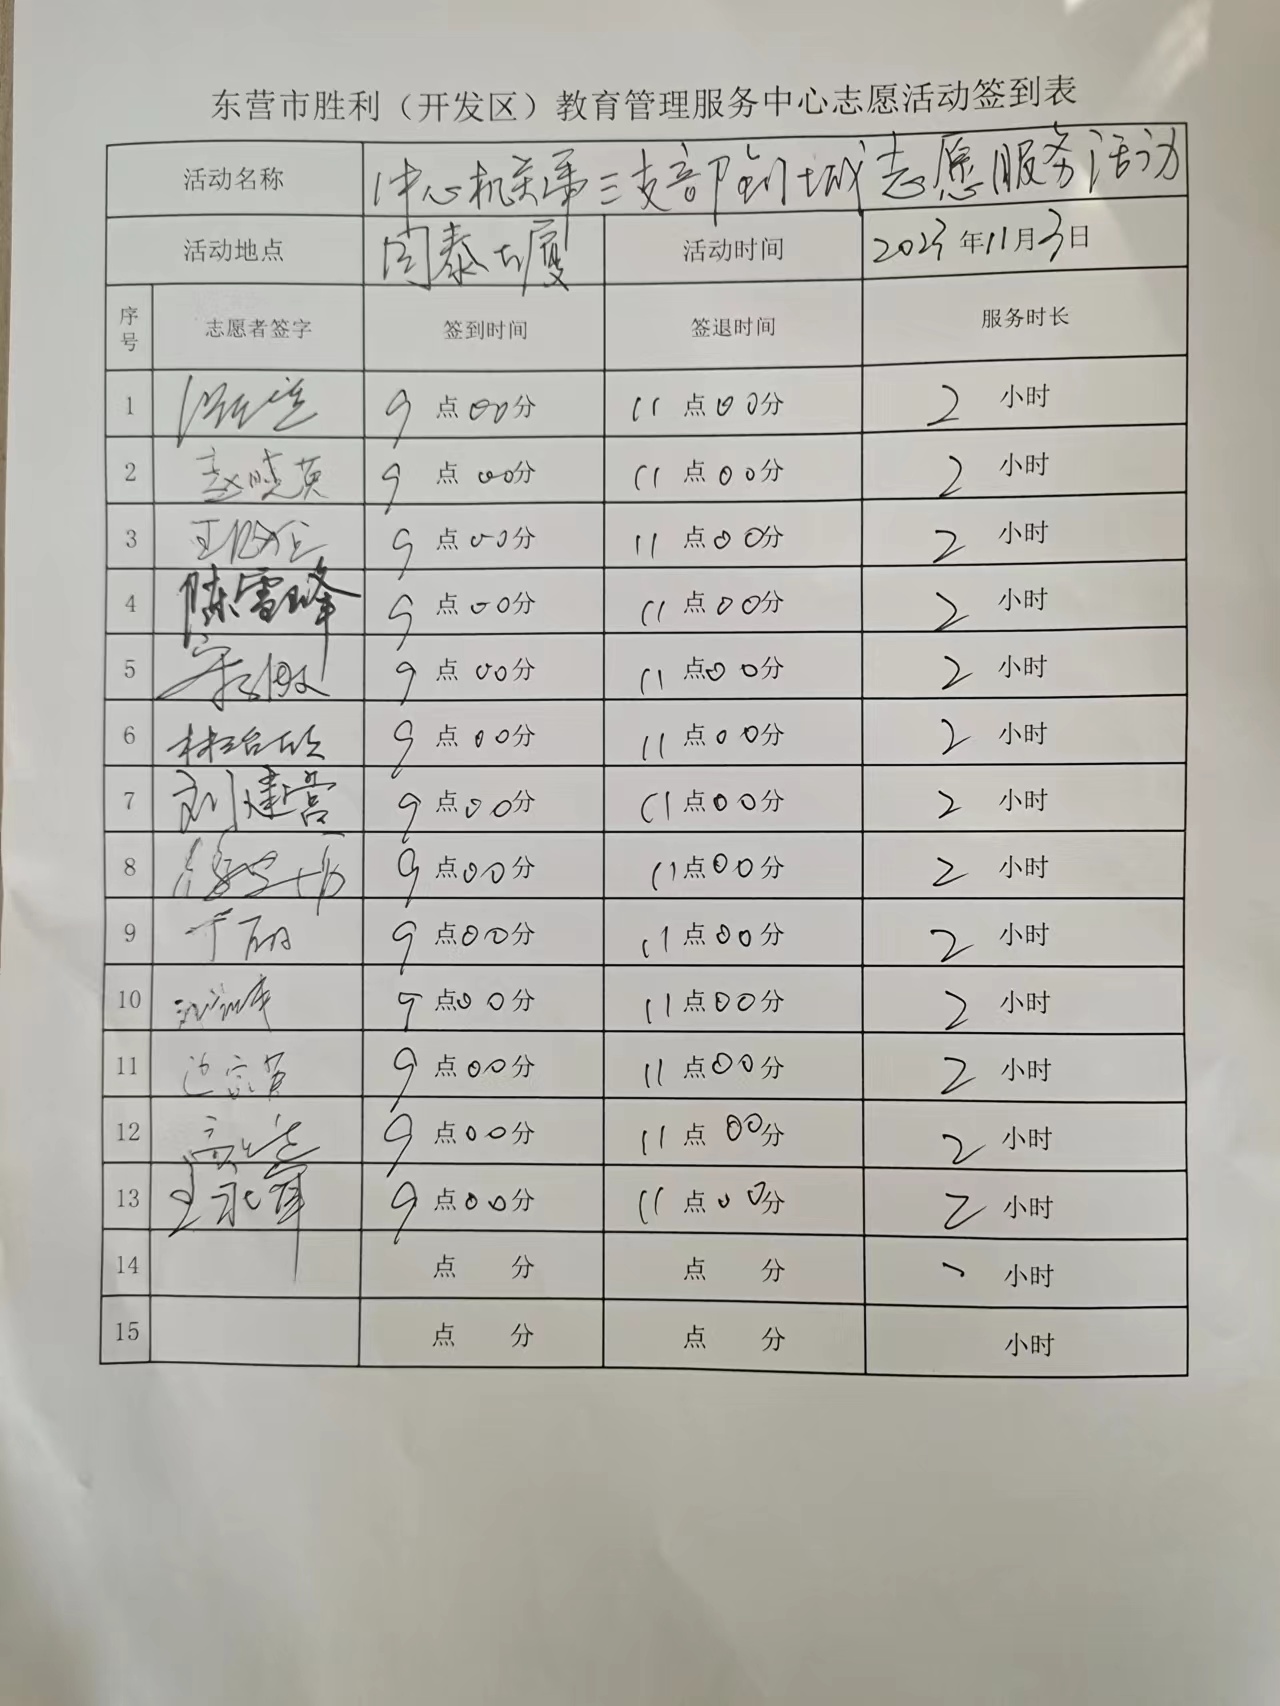 东营市胜利（开发区）教育管理服务中心志愿活动签到表
活动名称 中心机关第三支部创城志愿服务活动
活动地点 闰泰大厦 活动时间 2023年11月3日
序号 志愿者签字 签到时间 签退时间 服务时长
1 9点00分 11点00分 2小时
2 赵晓英 9点00分 11点00分 2小时
3 9点00分 11点00分 2小时
4 陈雪峰 9点00分 11点00分 2小时
5 9点00分 11点00分 2小时
6 9点00分 11点00分 2小时
7 刘建营 9点00分 11点00分 2小时
8 9点00分 11点00分 2小时
9 于丽 9点00分 11点00分 2小时
10 9点00分 11点00分 2小时
11 9点00分 11点00分 2小时
12 9点00分 11点00分 2小时
13 王永军 9点00分 11点00分 2小时
14 点 分 点 分 小时
15 点 分 点 分 小时